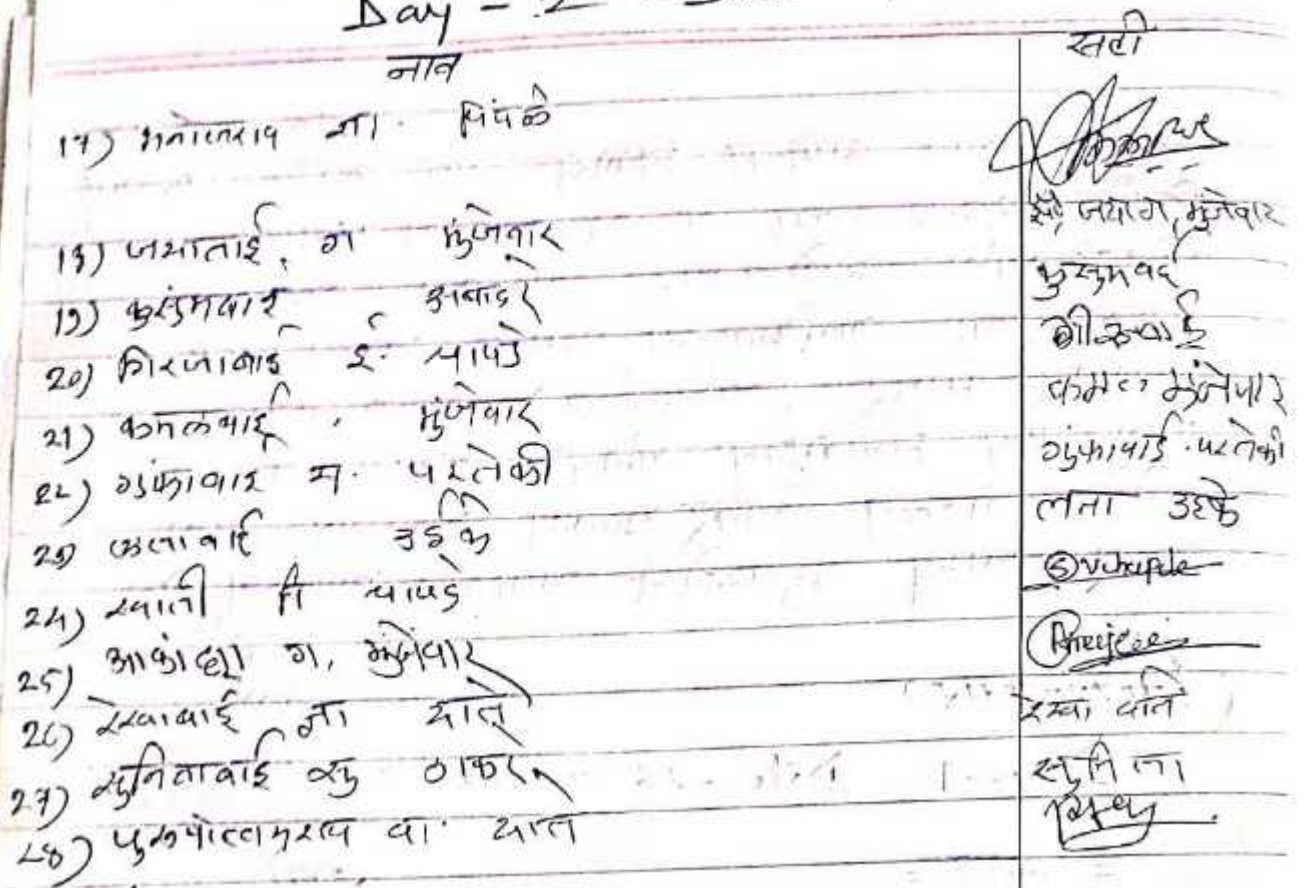 Day - 2
नाव सही
17) मनोजराव ना. पिंपळे
18) जयाताई, ग मुंजेवार सौ, जया ग, मुंजेवार
19) कुसुमबाई आबादरे कुसुमबाई
20) गिरजाबाई ई. चापडे गीरजाबाई
21) कमलबाई, मुंजेवार कमल मुंजेवार
22) गुंफाबाई म. परतेकी गुंफाबाई परतेकी
23) लताबाई उईके लता उइके
24) स्वाती वि चापडे
25) आकांक्षा ग, मुंजेवार
26) रेखाबाई ना याते रेखा याते
27) सुनिताबाई सु ठाकरे सुनिता
28) पुरुषोत्तमराव वा. याते